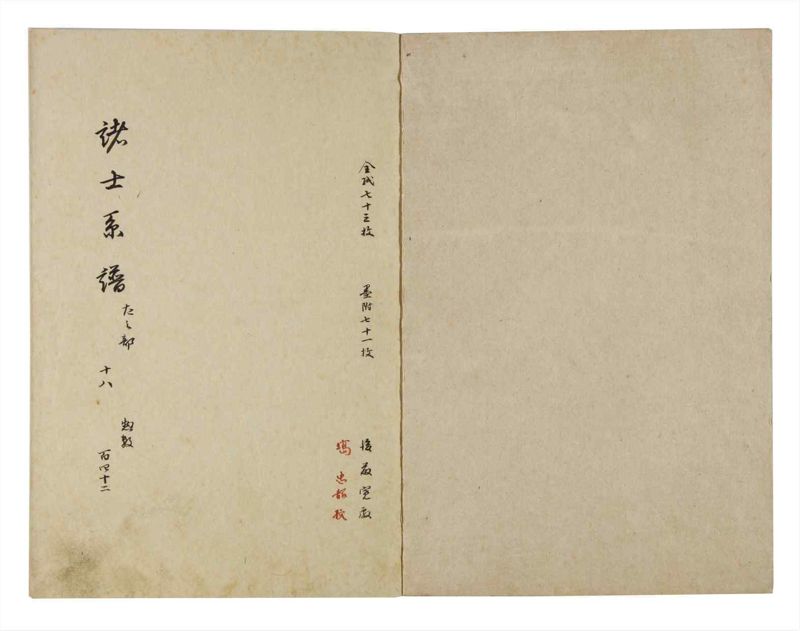 全紙七十三枚
墨附七十一枚
後藤寛蔵
寫
忠報校
諸士系譜
たノ部
十八
惣数
百四十二